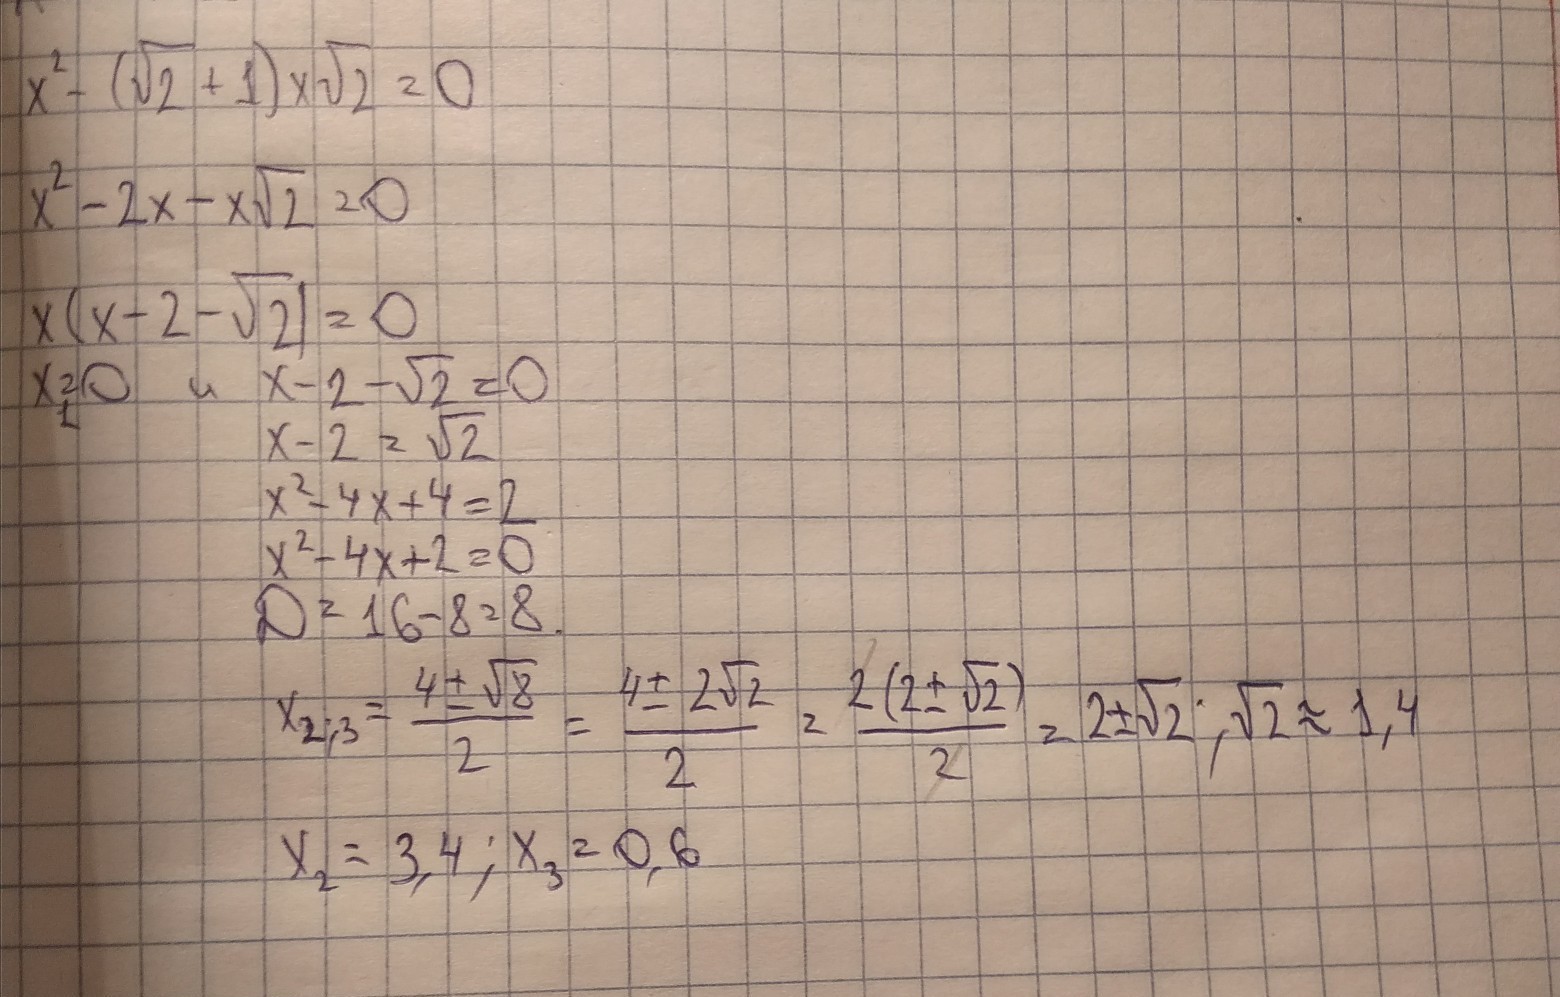 x² - (√2 + 1)x√2 = 0
x² - 2x - x√2 = 0
x(x - 2 - √2) = 0
x₁ = 0 и x - 2 - √2 = 0
x - 2 = √2
x² - 4x + 4 = 2
x² - 4x + 2 = 0
D = 16 - 8 = 8.
x₂;₃ = (4 ± √8)/2 = (4 ± 2√2)/2 = 2(2 ± √2)/2 = 2 ± √2 ; √2 ≈ 1,4
x₂ = 3,4 ; x₃ = 0,6